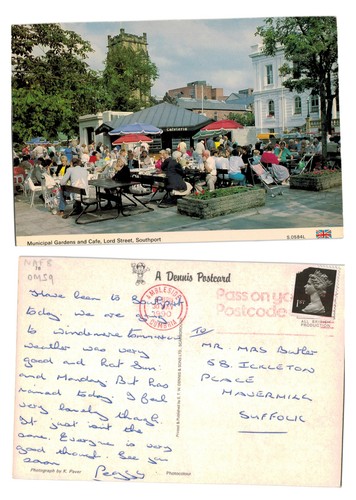 Cafeteria
Municipal Gardens and Cafe, Lord Street, Southport
S.0584L
A Dennis Postcard
AMBLESIDE
1990
CUMBRIA
Pass on you
Postcode
1ST
Have been to Southport
today we are
to Windermere tomorrow
weather was very
good and hot Sun
and Monday But has
rained today I feel
very lonely though.
It just isnt the
same. Everyone is very
good though. See you
soon
Peggy
To
MR MRS Butler
58. ICKLETON
PLACE
HAVERHILL
SUFFOLK
Photograph by K. Paver
Photocolour